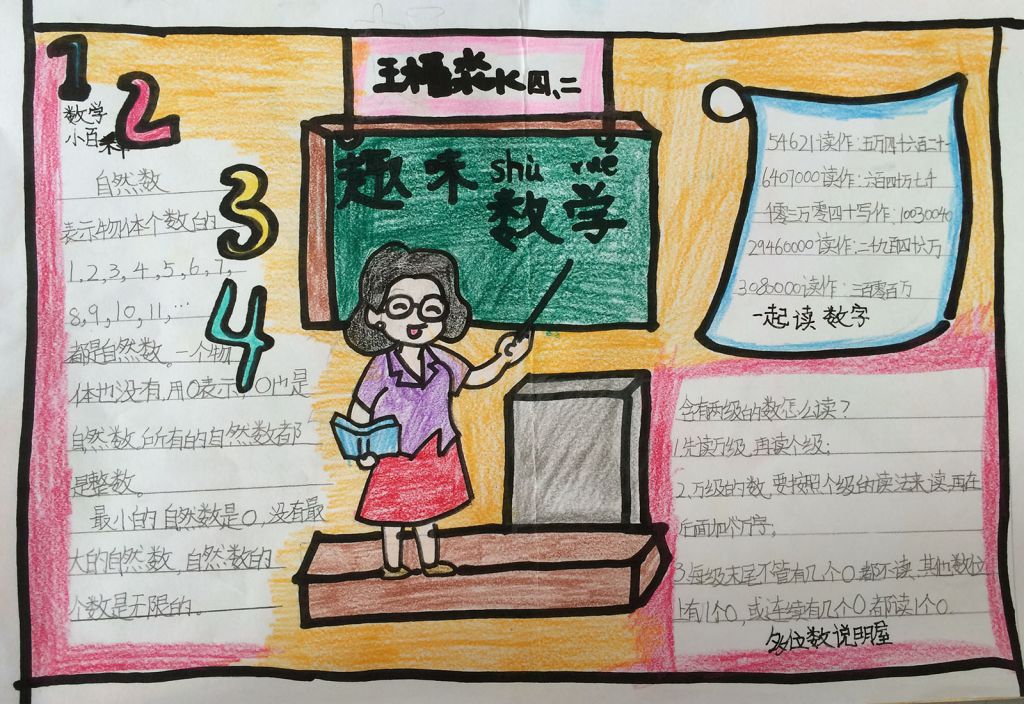 1
2
3
4
数学
小百科
自然数
表示物体个数的
1,2,3,4,5,6,7,
8,9,10,11,…
都是自然数。一个物
体也没有,用0表示,0也是
自然数,所有的自然数都
是整数。
最小的自然数是0,没有最
大的自然数,自然数的
个数是无限的。
四、二
shù
趣味数学
54621读作:五万四千六百二十一
6407000读作:六百四十万七千
一千零三万零四十写作:10030040
29460000读作:二千九百四十六万
读作:三百零八万
一起读数字
含有两级的数怎么读?
1.先读万级,再读个级;
2.万级的数,要按照个级的读法来读,再在
后面加个万字;
3.每级末尾不管有几个0,都不读,其他数位
上有1个0,或连续有几个0,都读1个0.
多位数说明屋